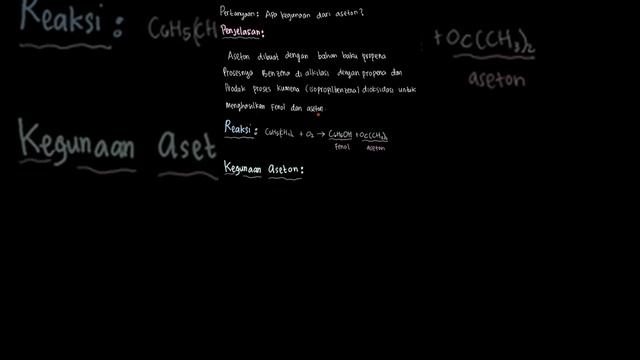 Pertanyaan: Apa kegunaan dari aseton?
Penjelasan:
Aseton dibuat dengan bahan baku propena
Prosesnya Benzena di alkilasi dengan propena dan
Produk proses kumena (isopropilbenzena) dioksidasi untuk
menghasilkan Fenol dan aseton.
Reaksi: C6H5(CH3)2 + O2 → C6H5OH + OC(CH3)2
Fenol aseton
Kegunaan Aseton:
Reaksi: C6H5(CH
+ OC(CH3)2
aseton
Kegunaan Aset